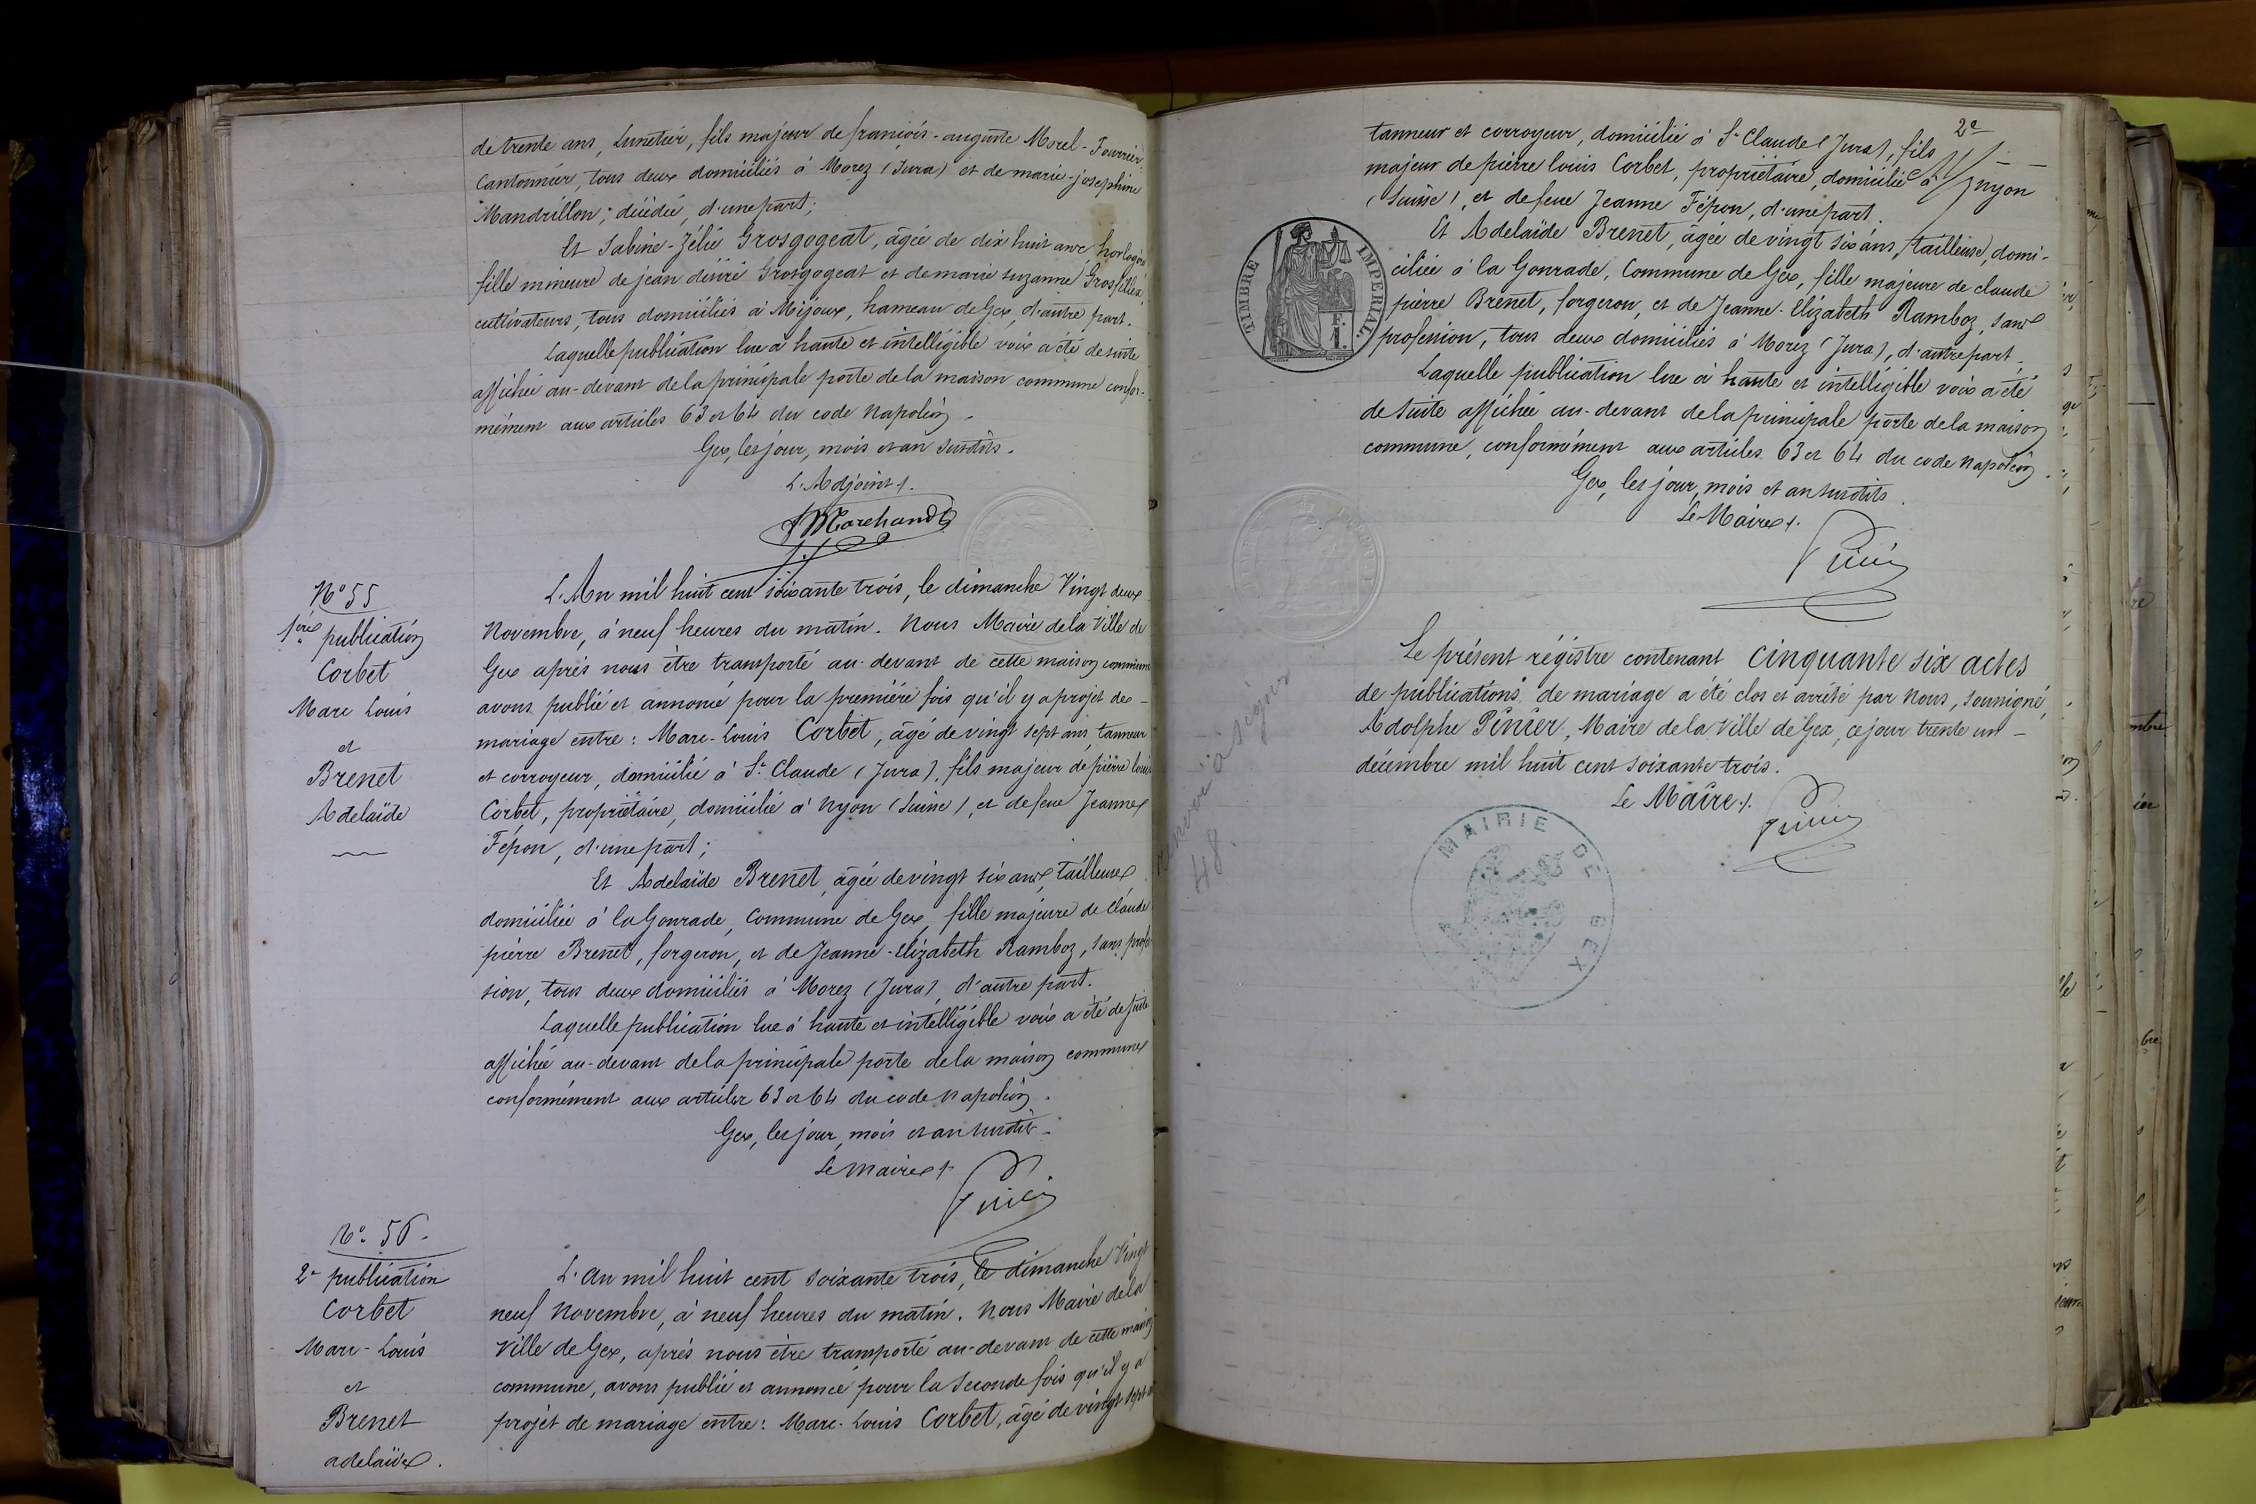 de trente ans, Lunetier, fils majeur de françois-auguste Morel-Fourrier
Cantonnier, tous deux domiciliés à Morez (Jura) et de marie-josephine
Mandrillon, décédée, d'une part;
Et Sabine-Zélie Grosgogeat, âgée de dix huit ans, horlogère
fille mineure de jean désiré Grosgogeat et de marie suzanne Grosfilley,
cultivateurs, tous domiciliés à Mijoux, hameau de Gex, d'autre part.
Laquelle publication lue à haute et intelligible voix a été de suite
affichée au-devant de la principale porte de la maison commune confor-
mément aux articles 63 et 64 du code Napoléon.
Gex, les jour, mois et an susdits.
L'Adjoint.
Marchand
N° 55
1ère publication
Corbet
Marc Louis
et
Brenet
Adelaïde
L'An mil huit cent soixante trois, le dimanche Vingt deux
Novembre, à neuf heures du matin. Nous Maire de la Ville de
Gex après nous être transporté au-devant de cette maison commune
avons publié et annoncé pour la première fois qu'il y a projet de
mariage entre: Marc-Louis Corbet, âgé de vingt sept ans, tanneur
et corroyeur, domicilié à St. Claude (Jura), fils majeur de pierre louis
Corbet, propriétaire, domicilié à Nyon (Suisse), et de feue Jeanne
Fépon, d'une part;
Et Adelaïde Brenet, âgée de vingt six ans, tailleuse
domiciliée à la Gourade, Commune de Gex, fille majeure de claude
pierre Brenet, forgeron, et de Jeanne-Elizabeth Ramboz, sans profes
sion, tous deux domiciliés à Morez (Jura), d'autre part.
Laquelle publication lue à haute et intelligible voix a été de suite
affichée au-devant de la principale porte de la maison commune
conformément aux articles 63 et 64 du code Napoléon.
Gex, les jour, mois et an susdits.
Le Maire
N° 56.
2e publication
Corbet
Marc-Louis
et
Brenet
adelaïde.
L'an mil huit cent soixante trois, le dimanche Vingt
neuf Novembre, à neuf heures du matin. Nous Maire de la
Ville de Gex, après nous être transporté au-devant de cette maison
commune, avons publié et annoncé pour la seconde fois qu'il y a
projet de mariage entre: Marc-Louis Corbet, âgé de vingt sept ans
2e
tanneur et corroyeur, domicilié à St. Claude (Jura), fils
majeur de pierre louis Corbet, propriétaire, domicilié à Nyon
(Suisse), et de feue Jeanne Fépon, d'une part.
Et Adelaïde Brenet, âgée de vingt six ans, tailleuse, domi-
ciliée à la Gourade, Commune de Gex, fille majeure de claude
pierre Brenet, forgeron, et de Jeanne-Elizabeth Ramboz, sans
profession, tous deux domiciliés à Morez (Jura), d'autre part.
Laquelle publication lue à haute et intelligible voix a été
de suite affichée au-devant de la principale porte de la maison
commune, conformément aux articles 63 et 64 du code Napoléon.
Gex, les jour, mois et an susdits.
Le Maire
TIMBRE IMPERIAL
Le présent régistre contenant cinquante six actes
de publications de mariage a été clos et arrêté par Nous, soussigné,
Adolphe Pinier, Maire de la Ville de Gex, ce jour trente un
décembre mil huit cent soixante trois.
Le Maire.
MAIRIE DE GEX
48.